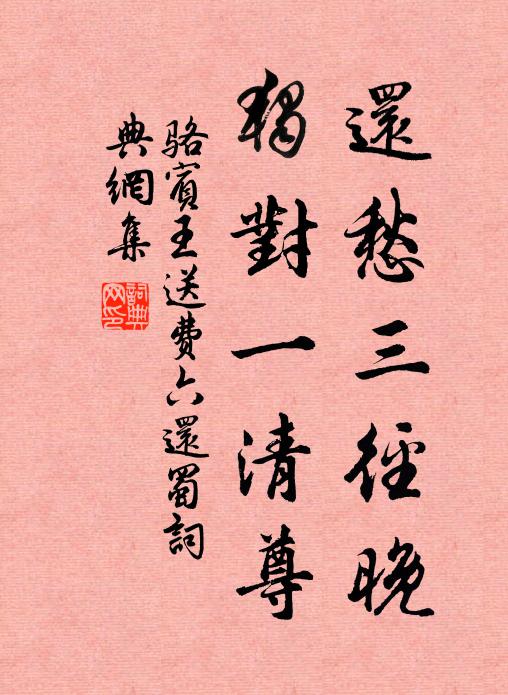 還愁三徑晚
獨對一清尊
駱賓王送費六還蜀詞
典網集
詞典
网印